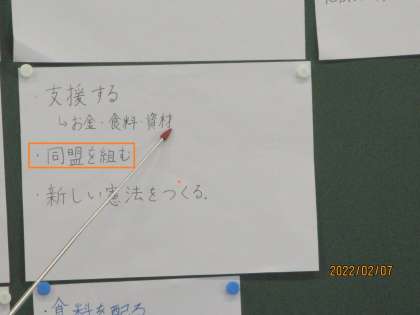 ・支援する
↳お金・食料・資材
・同盟を組む
・新しい憲法をつくる.
2022/02/07
・食料を配ろ